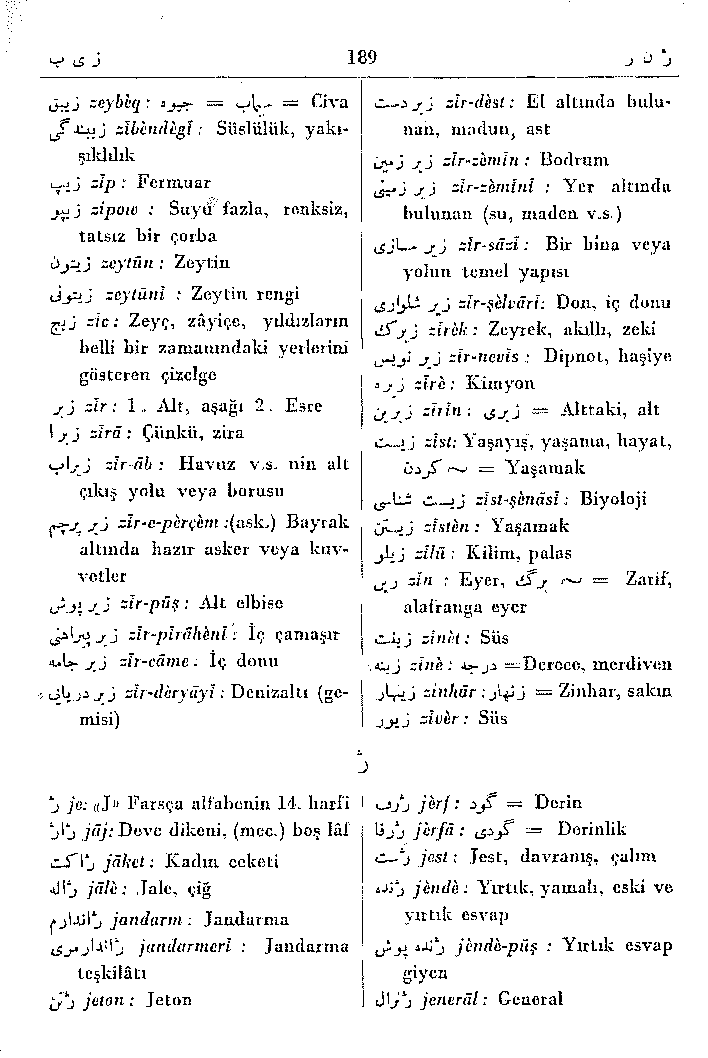 ز ی ب 189 ژ ن ر
زیبق zeybèq : جیوه = سیماب = Civa
زیبندگی zîbèndègî : Süslülük, yakı-
şıklılık
زیپ zîp : Fermuar
زیپو zipow : Suyu fazla, renksiz,
tatsız bir çorba
زیتون zeytûn : Zeytin
زیتونی zeytûnî : Zeytin rengi
زیج zîc : Zeyç, zâyiçe, yıldızların
belli bir zamanındaki yerlerini
gösteren çizelge
زیر zîr : 1. Alt, aşağı 2. Esre
زیرا zîrā : Çünkü, zira
زیراب zîr-āb : Havuz v.s. nin alt
çıkış yolu veya borusu
زیر پرچم zîr-e-pèrçèm :(ask.) Bayrak
altında hazır asker veya kuv-
vetler
زیر پوش zîr-pûş : Alt elbise
زیر پیراهنی zîr-pîrāhènî : İç çamaşır
زیر جامه zîr-cāme : İç donu
زیر دریائی zîr-dèryāyî : Denizaltı (ge-
misi)
زیر دست zîr-dèst : El altında bulu-
nan, madun, ast
زیر زمین zîr-zèmîn : Bodrum
زیر زمینی zîr-zèmînî : Yer altında
bulunan (su, maden v.s.)
زیر سازی zîr-sāzî : Bir bina veya
yolun temel yapısı
زیر شلواری zîr-şèlvārî : Don, iç donu
زیرک zîrèk : Zeyrek, akıllı, zeki
زیر نویس zîr-nevîs : Dipnot, haşiye
زیره zîrè : Kimyon
زیرین zîrîn : زیری = Alttaki, alt
زیست zîst: Yaşayış, yaşama, hayat,
~ کردن = Yaşamak
زیست شناسی zîst-şènāsî : Biyoloji
زیستن zîstèn : Yaşamak
زیلو zîlû : Kilim, palas
زین zîn : Eyer, ~ برگ = Zarif,
alafranga eyer
زینت zînèt : Süs
زینه zînè : درجه = Derece, merdiven
زینهار zinhār : زنهار = Zinhar, sakın
زیور zîvèr : Süs
ژ
ژ je: «J» Farsça alfabenin 14. harfi
ژاژ jāj: Deve dikeni, (mec.) boş lâf
ژاکت jāket : Kadın ceketi
ژاله jālè : Jale, çiğ
ژاندارم jandarm : Jandarma
ژاندارمری jandarmerî : Jandarma
teşkilâtı
ژتن jeton : Jeton
ژرف jèrf : گود = Derin
ژرفا jèrfā : گودی = Derinlik
ژست jest : Jest, davranış, çalım
ژنده jèndè : Yırtık, yamalı, eski ve
yırtık esvap
ژنده پوش jèndè-pûş : Yırtık esvap
giyen
ژنرال jenerāl : General